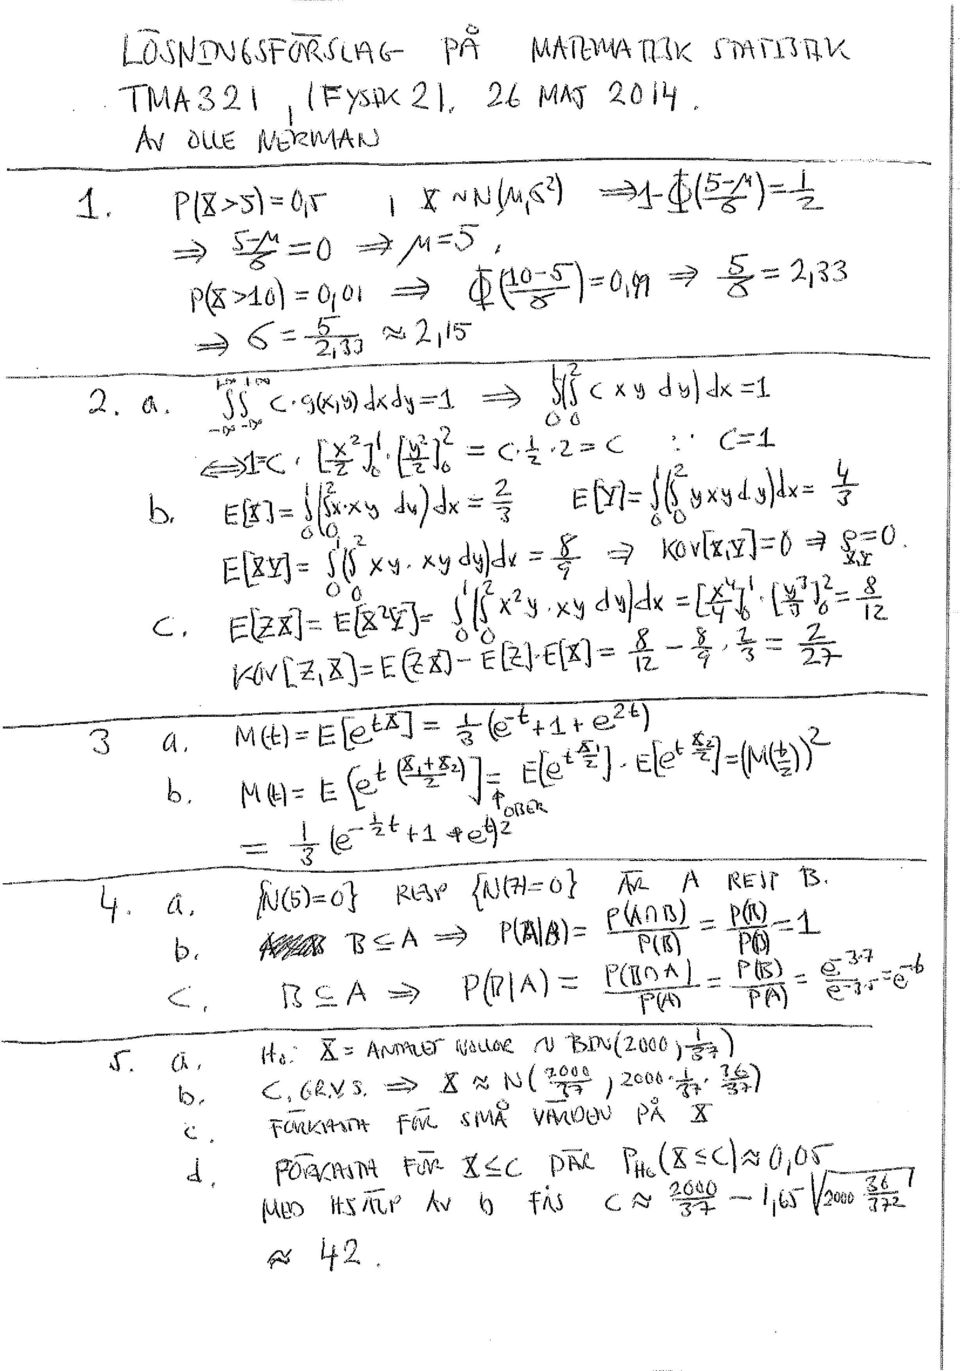 LÖSNINGSFÖRSLAG PÅ MATEMATISK STATISTIK
TMA321, (FYSIK 2), 26 MAJ 2014.
AV OLLE NERMAN
1. P(X>5)=0,5 , X ~N(μ,σ²) ⇒1-Φ((5-μ)/σ)=1/2
⇒ (5-μ)/σ=0 ⇒ μ=5,
P(X>10)=0,01 ⇒ Φ((10-5)/σ)=0,99 ⇒ 5/σ=2,33
⇒ σ=5/2,33 ≈2,15
2. a. ∫_{-∞}^{+∞}∫_{-∞}^{+∞} c·g(x,y)dxdy=1 ⇒ ∫_0^1(∫_0^2 c x y dy)dx=1
⇔1=c·[x²/2]_0^1·[y²/2]_0^2 = c·1/2·2=c ∵ c=1
b. E[X]=∫_0^1(∫_0^2 x·xy dy)dx=2/3 E[Y]=∫_0^1(∫_0^2 yxydy)dx=4/3
E[XY]=∫_0^1(∫_0^2 xy·xydy)dx=8/9 ⇒ KOV[X,Y]=0 ⇒ ρ_{X,Y}=0.
c. E[ZX]=E[X²Y]=∫_0^1(∫_0^2 x²y·xy dy)dx=[x⁴/4]_0^1·[y³/3]_0^2=8/12
KOV[Z,X]=E(ZX)-E[Z]·E[X]=8/12-8/9·2/3=2/27
3 a. M(t)=E[e^{tX}]=1/3(e^{-t}+1+e^{2t})
b. M(t)=E[e^{t((X₁+X₂)/2)}]=E[e^{tX₁/2}]·E[e^{tX₂/2}]=(M(t/2))²
↑OBER
=1/3(e^{-1/2t}+1+e^t)²
4. a. {N(5)=0} RESP {N(7)=0} ÄR A RESP B.
b. B⊆A ⇒ P(A|B)=P(A∩B)/P(B)=P(B)/P(B)=1
c. B⊆A ⇒ P(B|A)=P(B∩A)/P(A)=P(B)/P(A)=e^{-3·7}/e^{-3·5}=e^{-6}
5. a. H₀: X=ANTALET NOLLOR ~ BIN(2000,1/37)
b. C.GR.V.S. ⇒ X≈N(2000/37, 2000·1/37·36/37)
c. FÖRKASTA FÖR SMÅ VÄRDEN PÅ X
d. FÖRKASTA FÖR X≤C DÄR P_{H₀}(X≤C)≈0,05
MED HJÄLP AV b FÅS C≈2000/37-1,65√(2000 36/37²)
≈ 42.